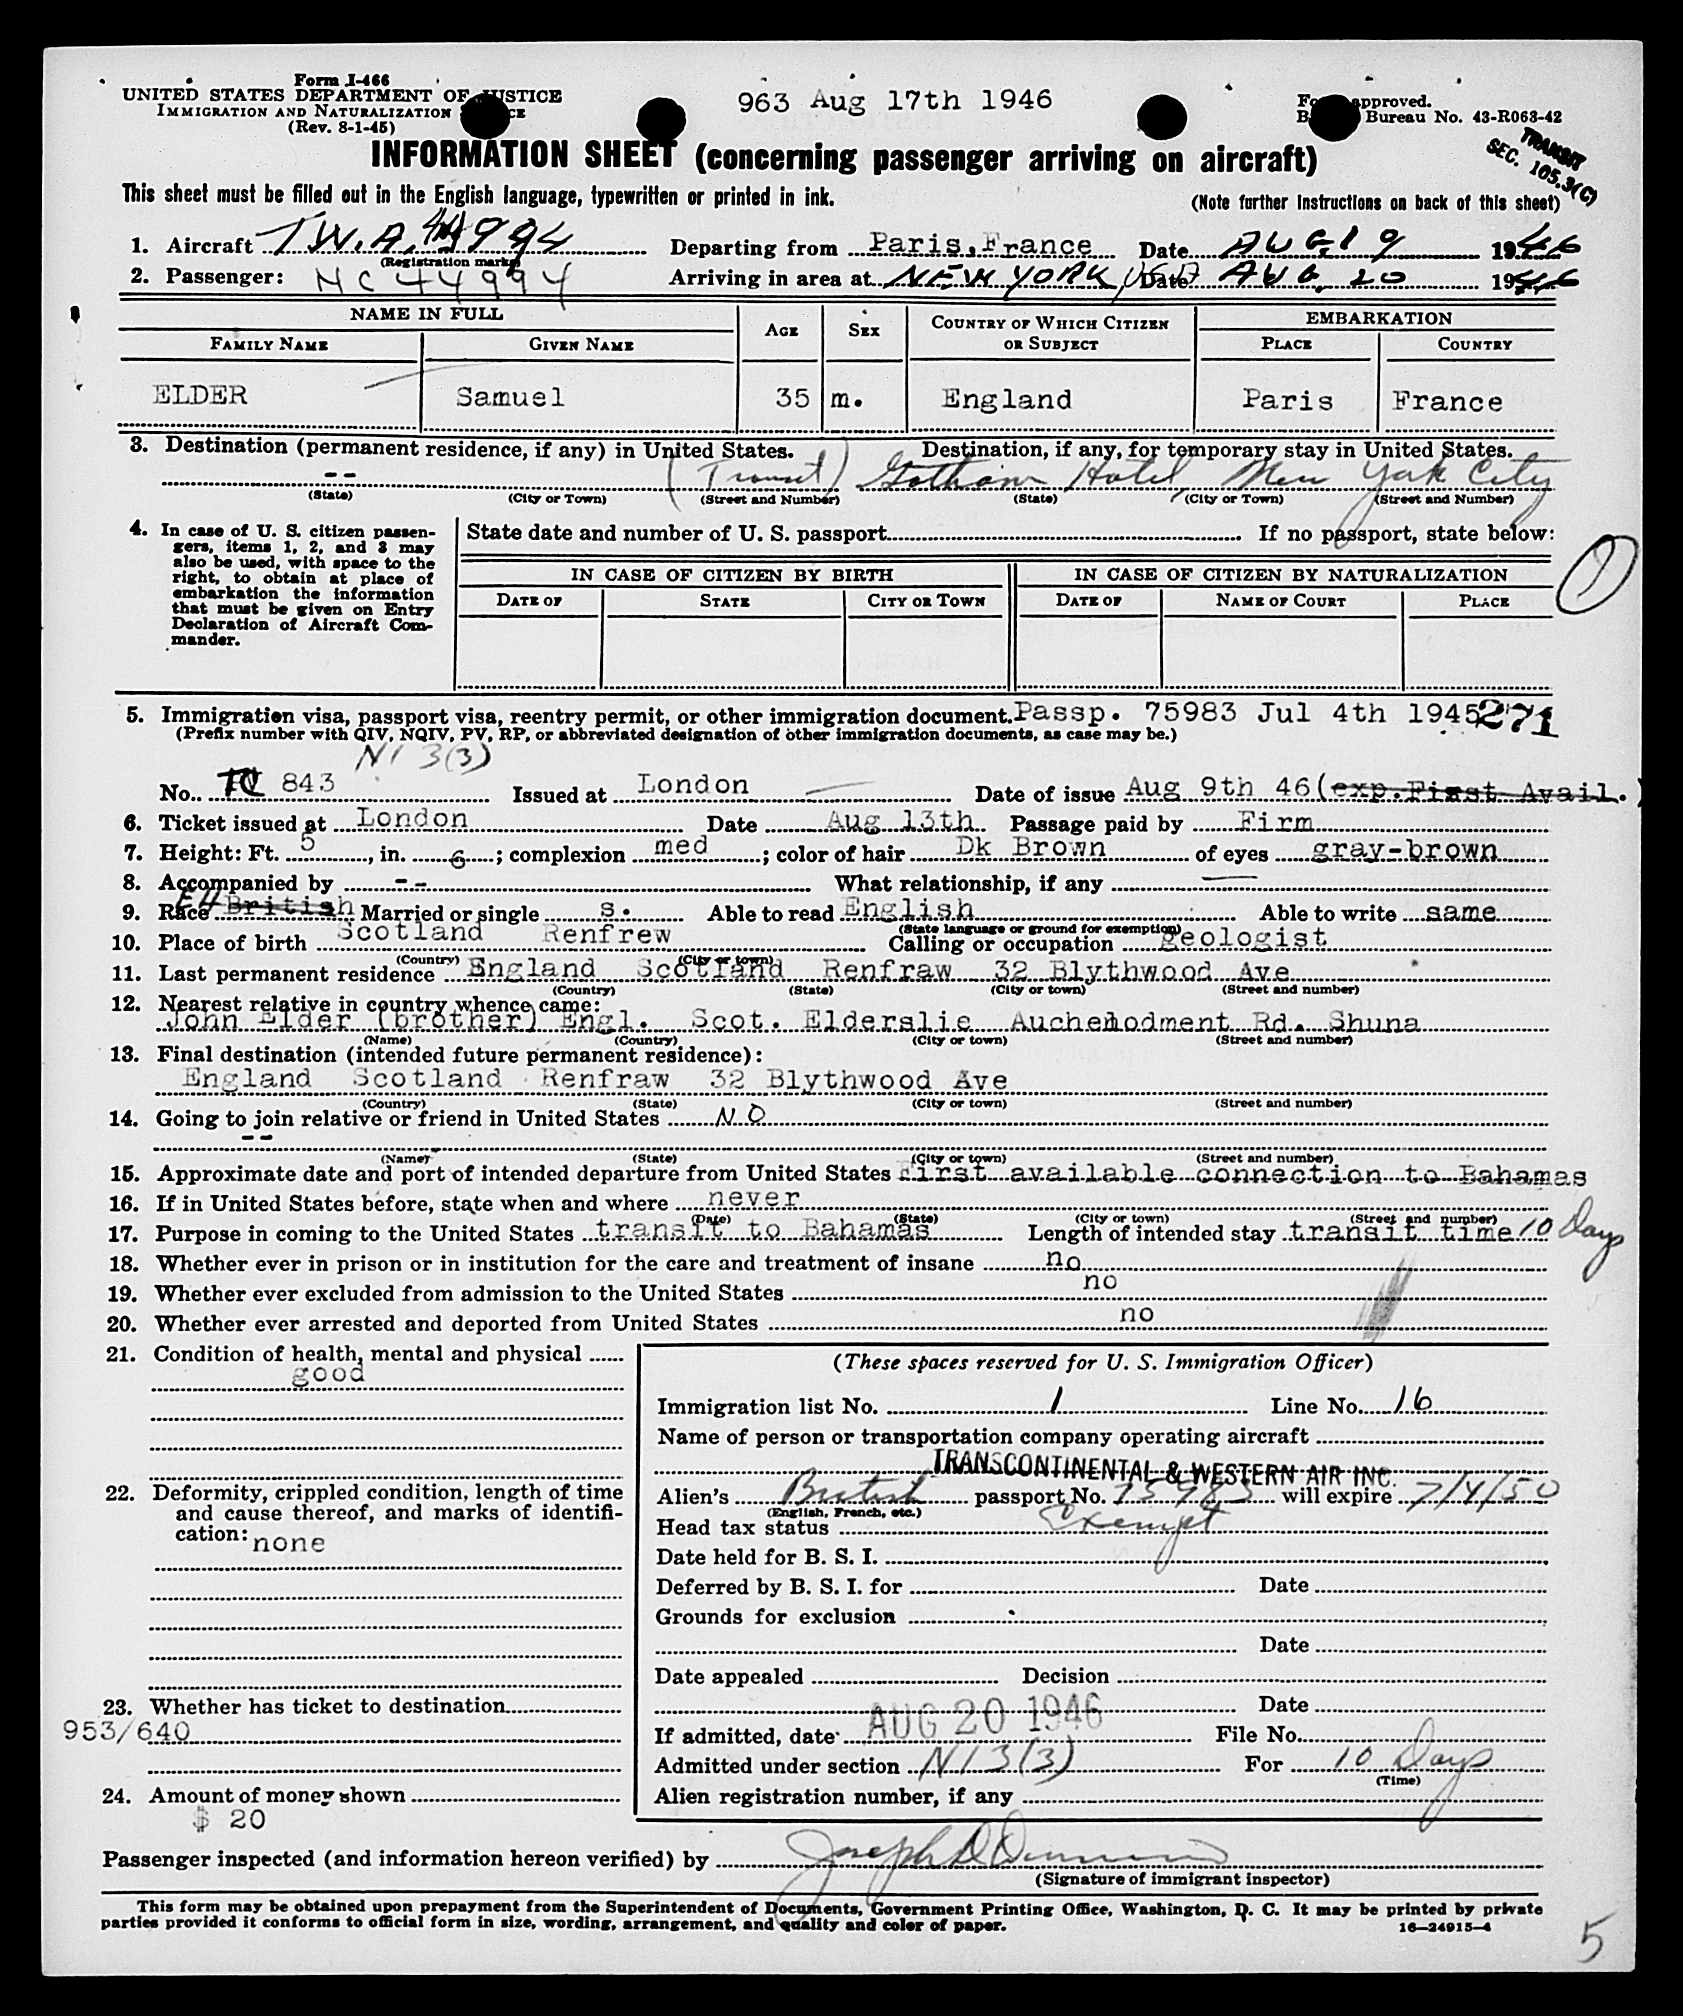 Form I-466
UNITED STATES DEPARTMENT OF JUSTICE
IMMIGRATION AND NATURALIZATION
(Rev. 8-1-45)
963 Aug 17th 1946
approved.
Bureau No. 43-R063-42
TRANSIT
SEC. 105.3(C)
INFORMATION SHEET (concerning passenger arriving on aircraft)
This sheet must be filled out in the English language, typewritten or printed in ink.
(Note further instructions on back of this sheet)
1. Aircraft T.W.A. 44994 Departing from Paris, France Date AUG. 19 1946
(Registration marks)
2. Passenger: NC 44994 Arriving in area at NEW YORK, USA Date AUG. 20 1946
NAME IN FULL AGE SEX COUNTRY OF WHICH CITIZEN OR SUBJECT EMBARKATION
FAMILY NAME GIVEN NAME PLACE COUNTRY
ELDER Samuel 35 m. England Paris France
3. Destination (permanent residence, if any) in United States. Destination, if any, for temporary stay in United States.
-- (Transit) Gotham Hotel, New York City
(State) (City or Town) (Street and Number) (State) (City or Town) (Street and Number)
4. In case of U. S. citizen passen-
gers, items 1, 2, and 3 may
also be used, with space to the
right, to obtain at place of
embarkation the information
that must be given on Entry
Declaration of Aircraft Com-
mander.
State date and number of U. S. passport If no passport, state below:
IN CASE OF CITIZEN BY BIRTH IN CASE OF CITIZEN BY NATURALIZATION
DATE OF STATE CITY OR TOWN DATE OF NAME OF COURT PLACE
1
5. Immigration visa, passport visa, reentry permit, or other immigration document. Passp. 75983 Jul 4th 1945 271
(Prefix number with QIV, NQIV, PV, RP, or abbreviated designation of other immigration documents, as case may be.)
NI 3(3)
No. TC 843 Issued at London Date of issue Aug 9th 46 (exp. First Avail.)
6. Ticket issued at London Date Aug 13th Passage paid by Firm
7. Height: Ft. 5, in. 6; complexion med; color of hair Dk Brown of eyes gray-brown
8. Accompanied by -- What relationship, if any —
9. Race British Married or single s. Able to read English Able to write same
(State language or ground for exemption)
10. Place of birth Scotland Renfrew Calling or occupation geologist
(Country) (City or town)
11. Last permanent residence England Scotland Renfraw 32 Blythwood Ave
(Country) (State) (City or town) (Street and number)
12. Nearest relative in country whence came:
John Elder (brother) Engl. Scot. Elderslie Auchenlodment Rd. Shuna
(Name) (Country) (City or town) (Street and number)
13. Final destination (intended future permanent residence):
England Scotland Renfraw 32 Blythwood Ave
(Country) (State) (City or town) (Street and number)
14. Going to join relative or friend in United States NO
--
(Name) (State) (City or town) (Street and number)
15. Approximate date and port of intended departure from United States First available connection to Bahamas
16. If in United States before, state when and where never
(Date) (State) (City or town) (Street and number)
17. Purpose in coming to the United States transit to Bahamas Length of intended stay transit time 10 Days
18. Whether ever in prison or in institution for the care and treatment of insane no
19. Whether ever excluded from admission to the United States no
20. Whether ever arrested and deported from United States no
21. Condition of health, mental and physical
good
22. Deformity, crippled condition, length of time
and cause thereof, and marks of identifi-
cation: none
23. Whether has ticket to destination
953/640
24. Amount of money shown
$ 20
(These spaces reserved for U. S. Immigration Officer)
Immigration list No. 1 Line No. 16
Name of person or transportation company operating aircraft
TRANSCONTINENTAL & WESTERN AIR INC.
Alien's British passport No. 75983 will expire 7/4/50
(English, French, etc.)
Head tax status Exempt
Date held for B. S. I.
Deferred by B. S. I. for Date
Grounds for exclusion
Date
Date appealed Decision
Date
If admitted, date AUG 20 1946 File No.
Admitted under section NI 3(3) For 10 Days
(Time)
Alien registration number, if any
Passenger inspected (and information hereon verified) by Joseph D
(Signature of immigrant inspector)
This form may be obtained upon prepayment from the Superintendent of Documents, Government Printing Office, Washington, D. C. It may be printed by private
parties provided it conforms to official form in size, wording, arrangement, and quality and color of paper.
16—24915-4
5